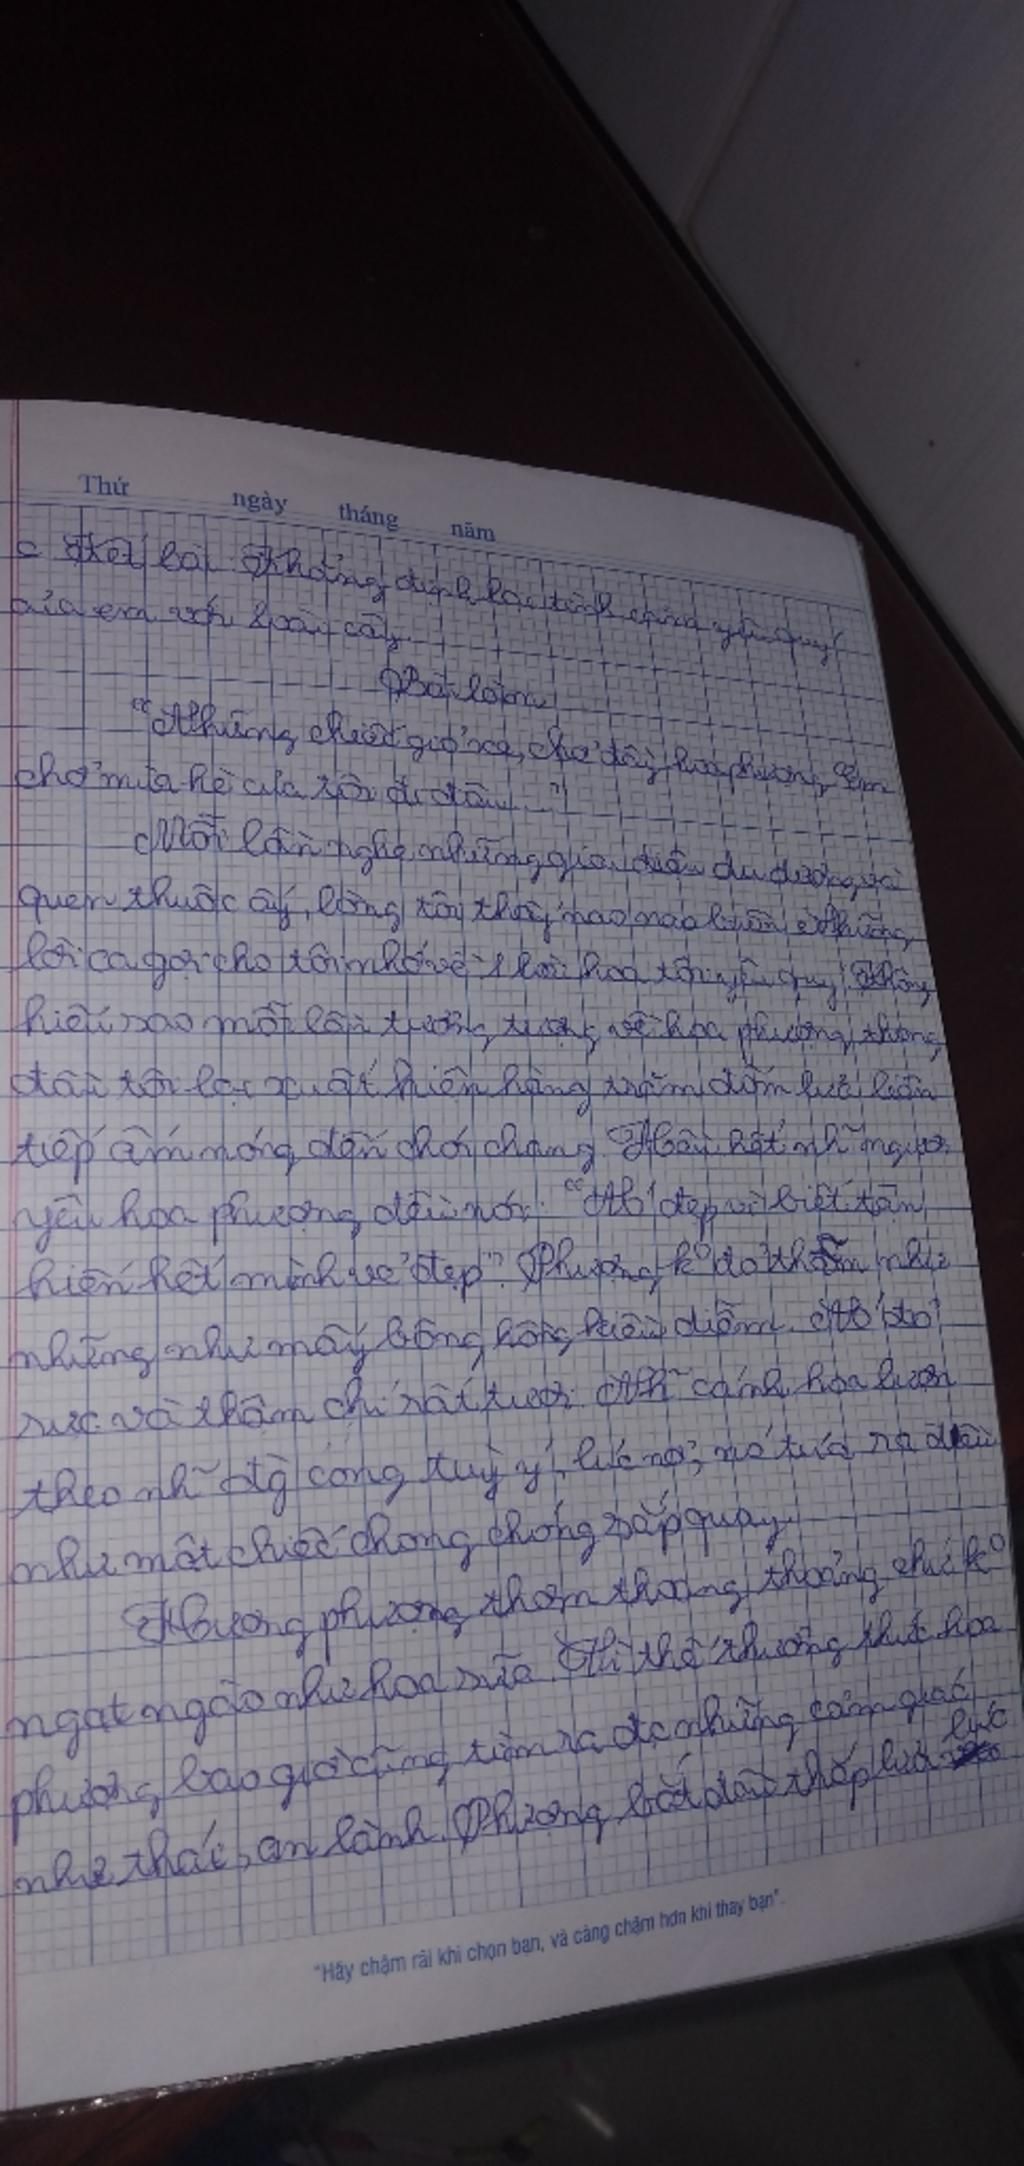 Thứ ngày tháng năm
c Kết bài Khẳng định lại tình cảm yêu quý
của em với loài cây.
Bài làm
"Những chiếc giỏ xe, chở đầy hoa phượng, Em
chở mùa hè của tôi đi đâu ..."
Mỗi lần nghe những giai điệu du dương và
quen thuộc ấy, lòng tôi thấy nao nao buồn. Những
lời ca gợi cho tôi nhớ về 1 loài hoa tôi yêu quý. Không
hiểu sao mỗi lần tưởng tượng về hoa phượng, trong
đầu tôi lại xuất hiện hàng trăm đốm lửa liên
tiếp ấm nóng đến chói chang. Hầu hết nh~ người
yêu hoa phượng đều nói: "Nó đẹp vì biết tận
hiến hết mình vẻ đẹp". Phượng k° đỏ thẫm như
những như mấy bông hồng kiều diễm. Nó đỏ
rực và thậm chí rất tươi. Nh~ cánh hoa lượn
theo nh~ đg cong tuỳ ý, lúc nở, nó tựa ra đều
như một chiếc chong chóng sắp quay.
Hương phượng thơm thoang thoảng chứ k°
ngạt ngào như hoa sữa. Vì thế thưởng thức hoa
phượng bao giờ cũng tìm ra đc những cảm giác
như thái, an lành. Phượng bắt đầu thắp lửa lúc
"Hãy chậm rãi khi chọn bạn, và càng chậm hơn khi thay bạn".